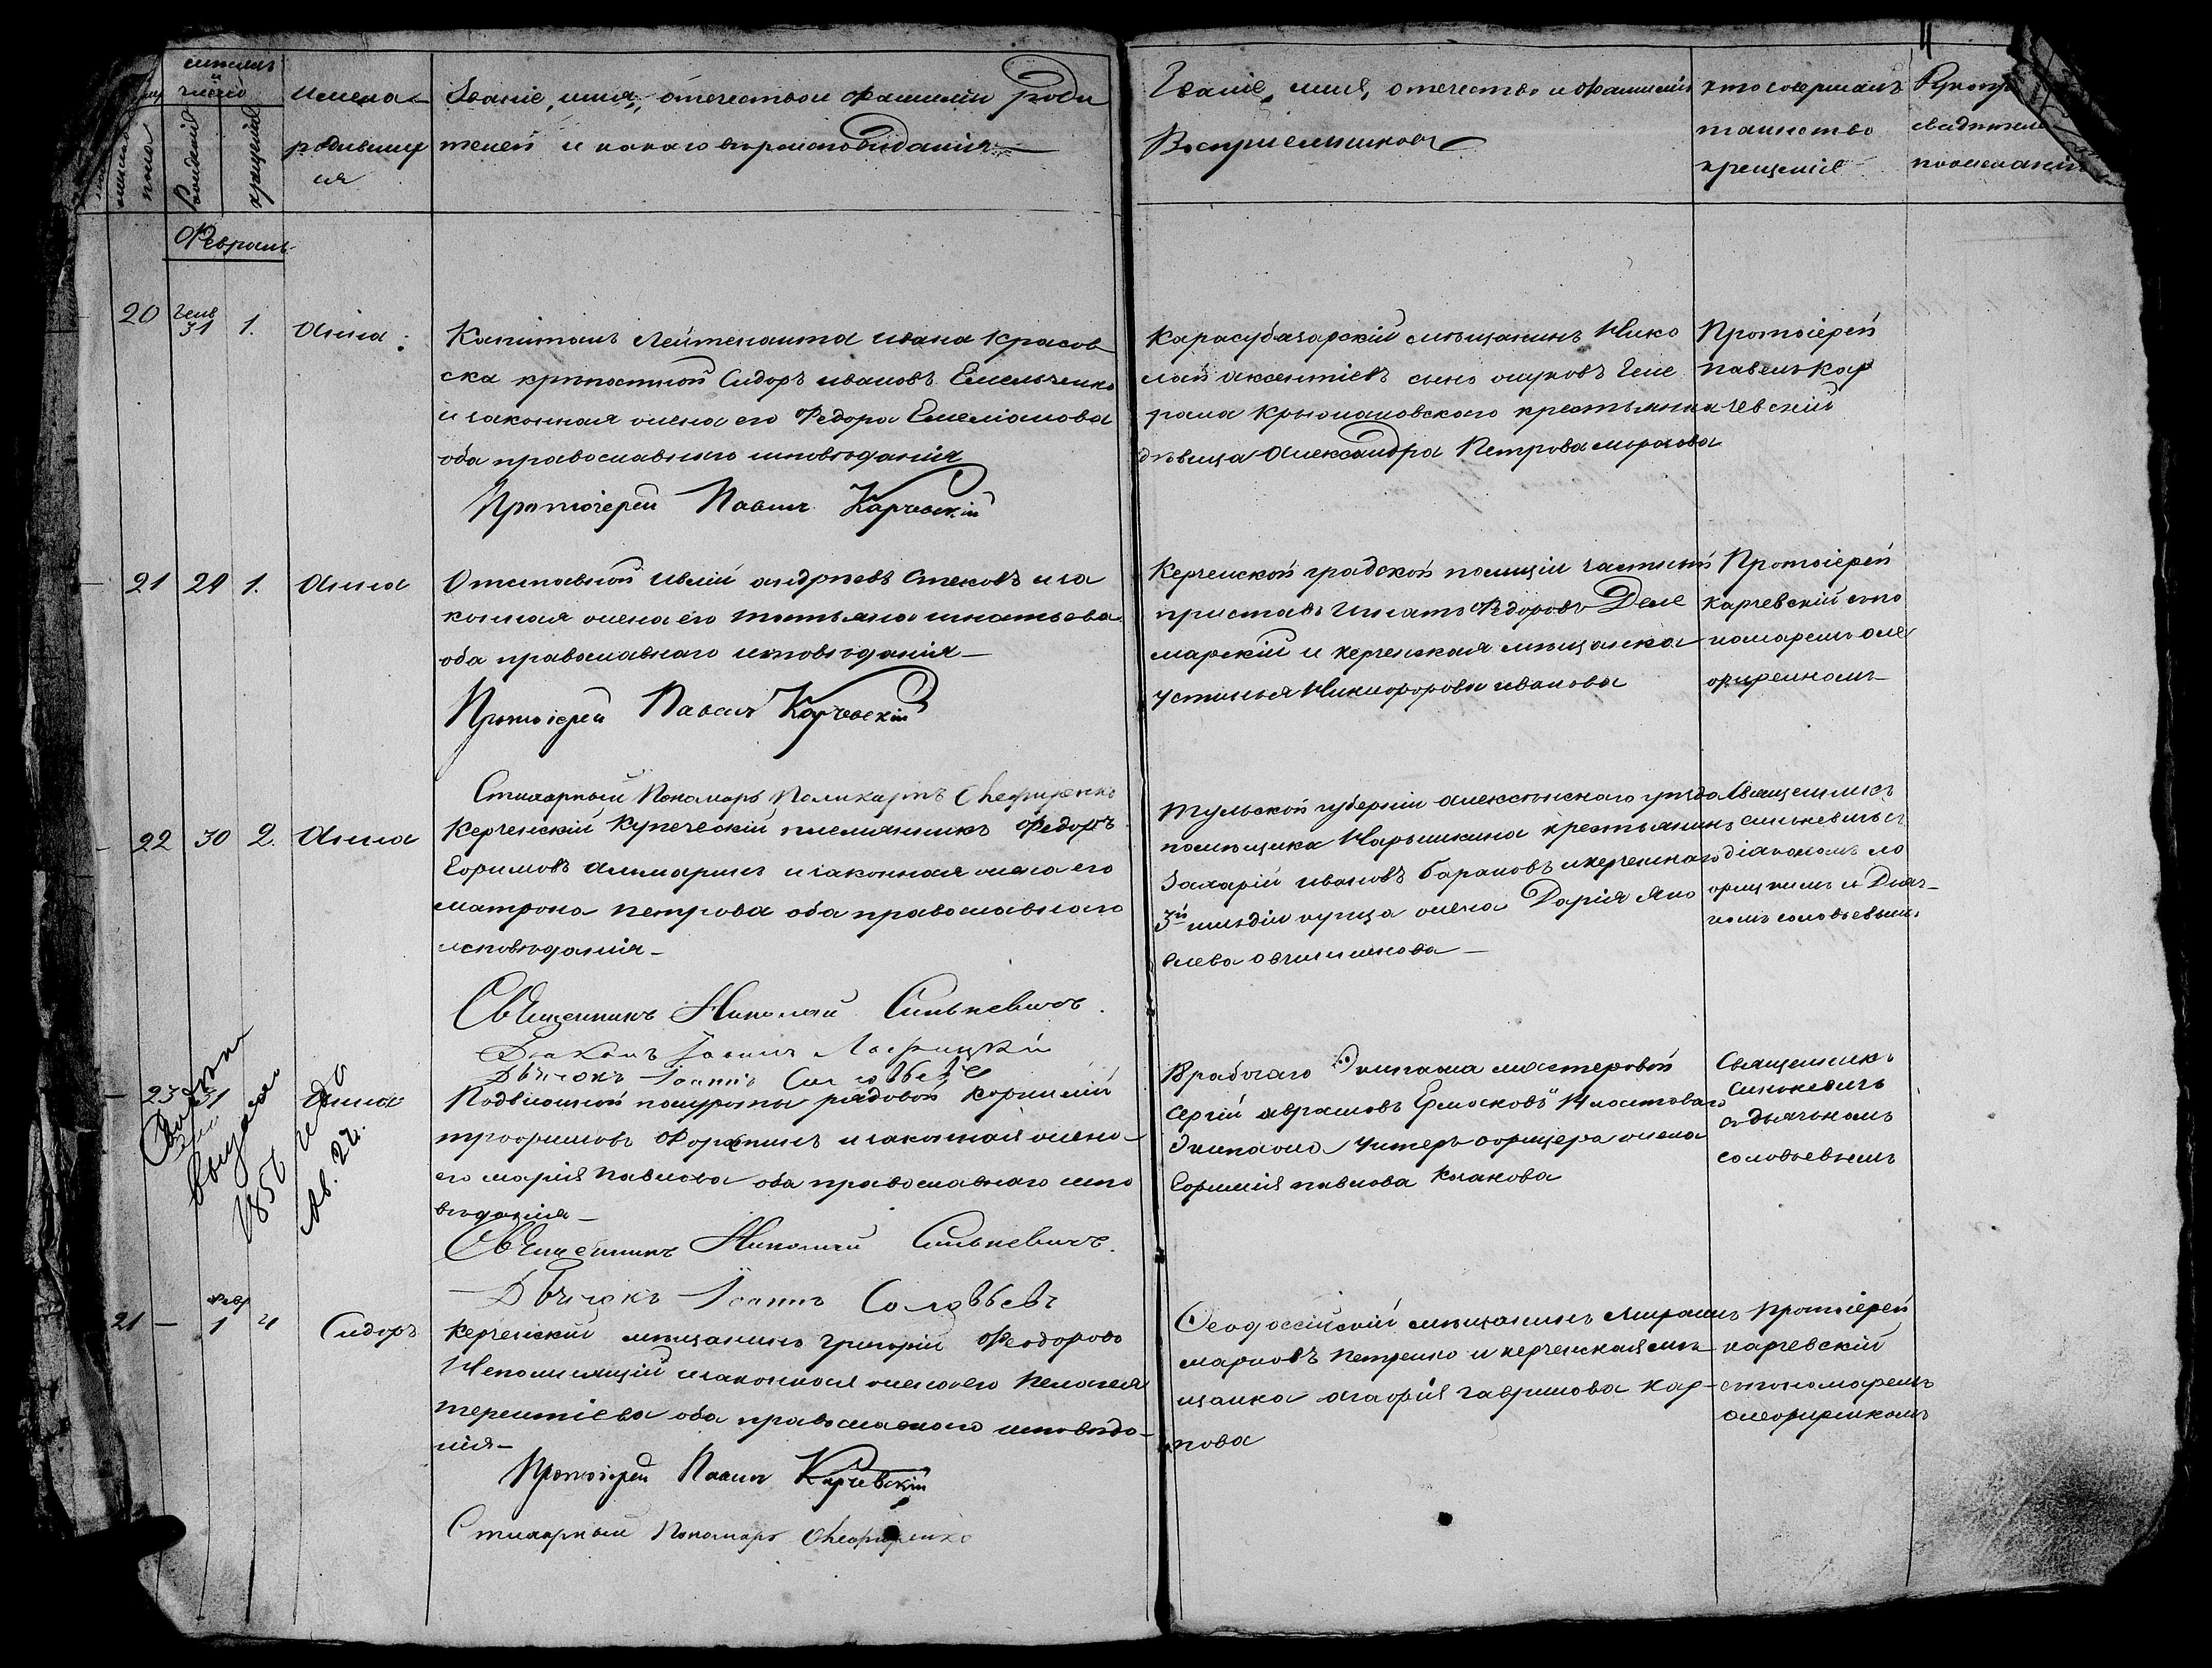 мѣсяцъ
и
число
рожденія
крещенія
Имена
родивших
ся
Званіе, имя, отечество и фамилія роди
телей и какого вѣроисповѣданія
Званіе, имя, отечество и фамилія
Воспріемниковъ
кто совершалъ
таинство
крещенія
Рукопр
свидѣтел
по желанію
Февраль
20
генв
31
1.
Анна
Капитанъ Лейтенанта Ивана Красов
ска крѣпостной Сидоръ ивановъ Емельченко
и законная жена его Федора Емеліанова
оба православнаго исповѣданія
Протоіерей Павелъ Карчевскій
Карасубазарскій мѣщанинъ Нико
лай Аксентіевъ сынъ Гене
рала крестьянина
дѣвица Александра Петрова морозова
Протоіерей
Павелъ Кар
чевскій
21
29
1.
Анна
Отставной андрѣевъ Стековъ и за
конная жена его татьяна игнатьева
оба православнаго исповѣданія
Протоіерей Павелъ Карчевскій
Керченской градской полиціи частный
приставъ Игнатъ Федоровъ Деле
марскій и керченская мѣщанка
устинья Никифорова иванова
Протоіерей
карчевскій съ по
номаремъ оне
фриенкомъ
Стихарный Пономарь Поликарпъ Онефріенко
22
30
2.
Анна
Керченскій Купеческій племянникъ Федоръ
Ефимовъ и законная жена его
матрона петрова оба православнаго
исповѣданія
Священникъ Николай Синькевичъ.
Діаконъ Іоаннъ
Дьячокъ Іоаннъ Соловьевъ
Тульской губерніи алексинскаго уѣзда
помѣщика Нарышкина крестьянинъ
Захарій ивановъ барановъ и керченскаго
3й гильдіи купца жена Дарія Яко
влева овчинникова
Священникъ
синькевичъ съ
діакономъ ло
фицкимъ и Дьяч
комъ соловьевымъ
23
31
Анна
Подвижной полуроты рядовой Корнилій
трофимовъ и законная жена
его марія павлова оба православнаго испо
вѣданія
Священникъ Николай Синькевичъ.
Дьячокъ Іоаннъ Соловьевъ
выдана
1856 года
В рабочаго Экипажа мастеровой
Сергій аврамовъ Ермаковъ и
Экипажа унтеръ офицера жена
Евфимія павлова
Священникъ
синькевичъ
съ дьячкомъ
соловьевымъ
21
февр
1
4
Сидоръ
Керченскій мѣщанинъ григорій Феодоровъ
Непомнящій и законная жена его Пелагея
терентіева оба православнаго исповѣда
нія
Протоіерей Павелъ Карчевскій
Стихарный Пономарь Онефріенко
Ѳеодосійскій мѣщанинъ
марковъ петренко и керченская мѣ
щанка агафія гаврилова кар
пова
Протоіерей
карчевскій
съ пономаремъ
онефриенкомъ